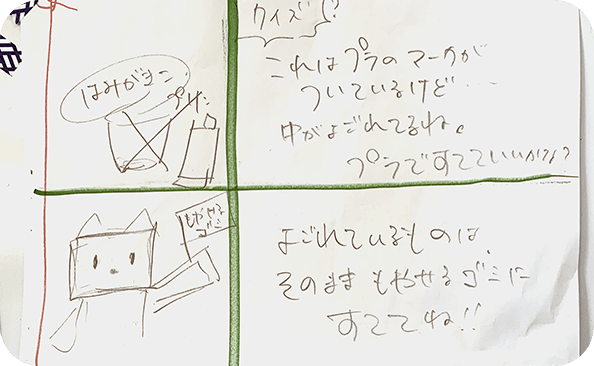 クイズ!?
これはプラのマークが
ついているけど・・・
中がよごれてるね。
プラですてていいかな?
はみがきこ
よごれているものは、
そのままもやせるゴミに
すててね!!
もやせる
ゴミ